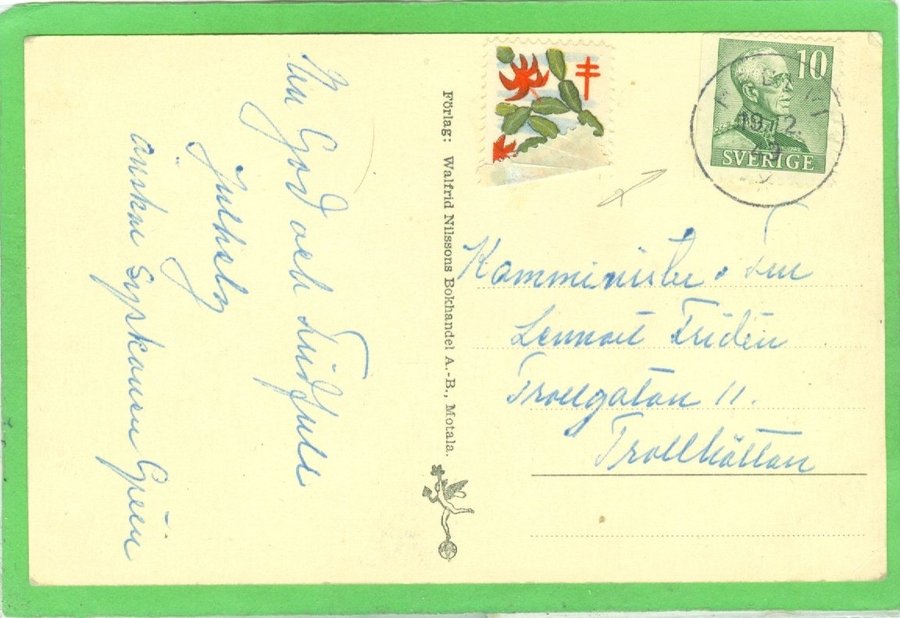 En God och Fridfull
Julhelg
önskar Syskonen Grén
Förlag: Walfrid Nilssons Bokhandel A.-B., Motala.
10
SVERIGE
19.12.
Komminister o Fru
Lennart Fridén
Trollgatan 11.
Trollhättan